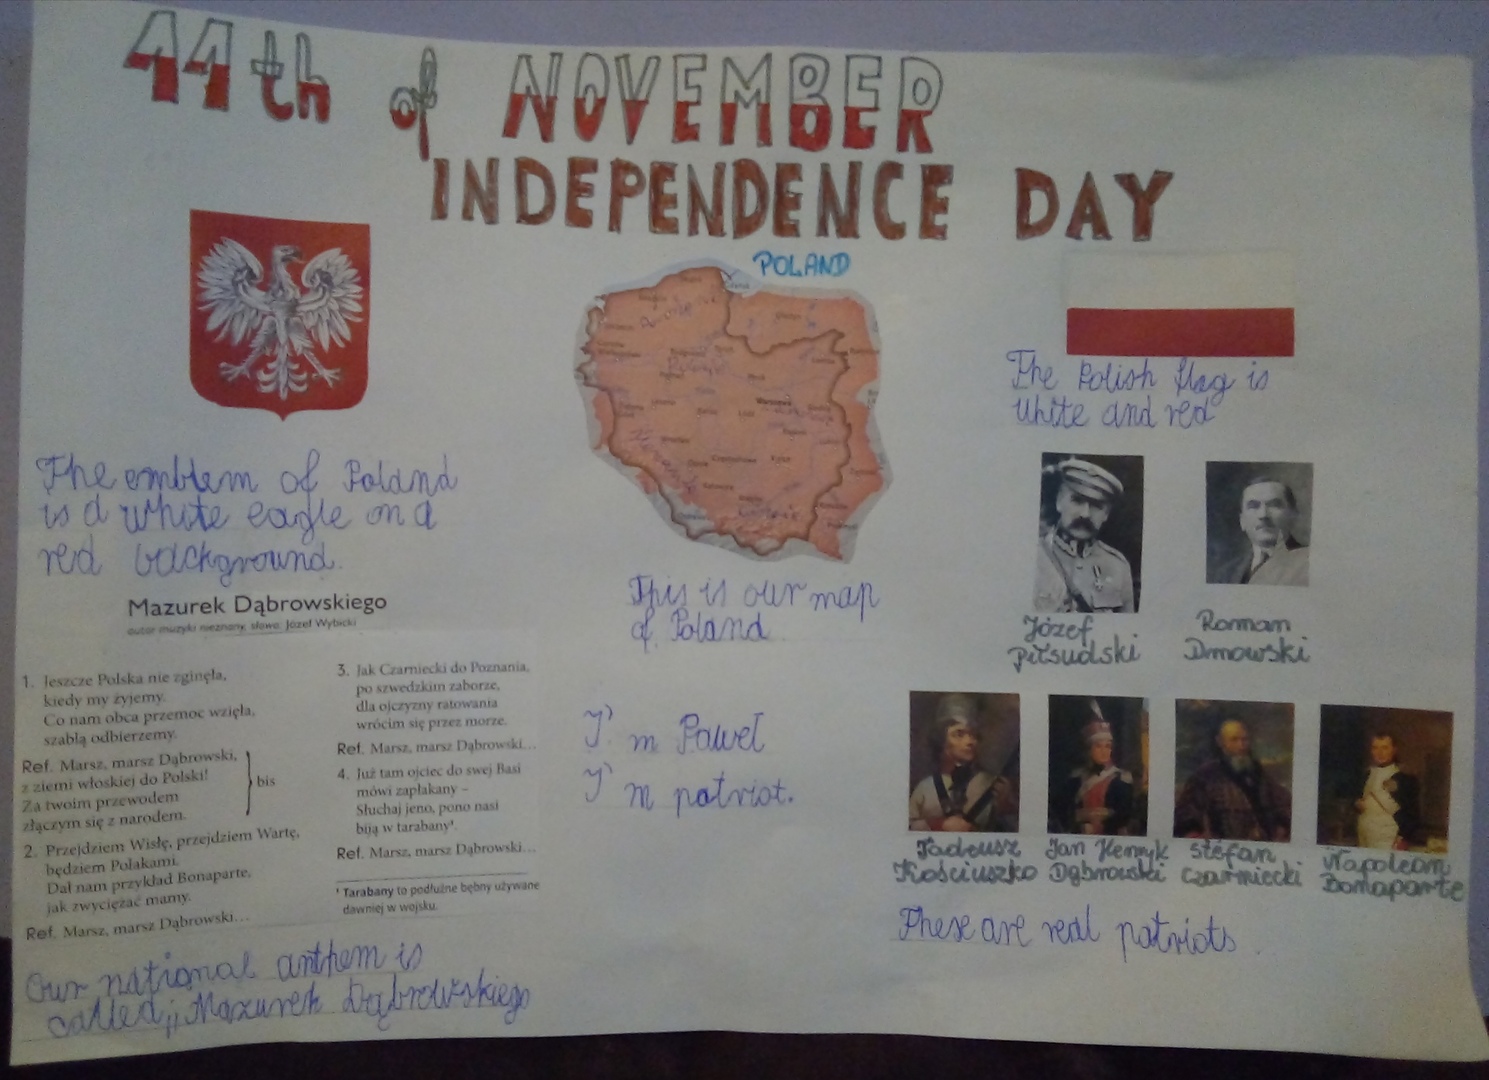 11th of NOVEMBER
INDEPENDENCE DAY
POLAND
The Polish flag is
white and red
The emblem of Poland
is a white eagle on a
red background.
This is our map
of Poland
Józef
Piłsudski
Roman
Dmowski
Mazurek Dąbrowskiego
autor muzyki nieznany, słowa: Józef Wybicki
1. Jeszcze Polska nie zginęła,
kiedy my żyjemy.
Co nam obca przemoc wzięła,
szablą odbierzemy.
Ref. Marsz, marsz Dąbrowski,
z ziemi włoskiej do Polski!
Za twoim przewodem
złączym się z narodem.
bis
2. Przejdziem Wisłę, przejdziem Wartę,
będziem Polakami.
Dał nam przykład Bonaparte,
jak zwyciężać mamy.
Ref. Marsz, marsz Dąbrowski...
3. Jak Czarniecki do Poznania,
po szwedzkim zaborze,
dla ojczyzny ratowania
wrócim się przez morze.
Ref. Marsz, marsz Dąbrowski...
4. Już tam ojciec do swej Basi
mówi zapłakany –
Słuchaj jeno, pono nasi
biją w tarabany¹.
Ref. Marsz, marsz Dąbrowski...
¹ Tarabany to podłużne bębny używane
dawniej w wojsku.
I'm Paweł
I'm patriot.
Tadeusz
Kościuszko
Jan Henryk
Dąbrowski
Stefan
Czarniecki
Napoleon
Bonaparte
These are real patriots.
Our national anthem is
called „Mazurek Dąbrowskiego